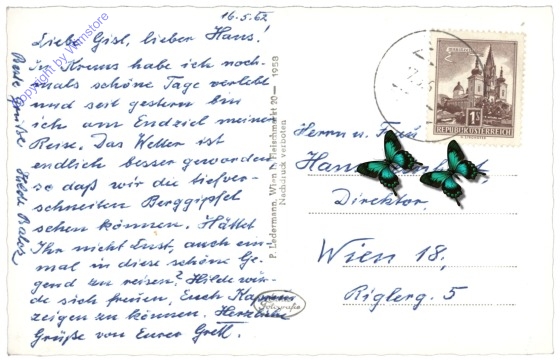 16.5.62
Liebe Gisl, lieber Hans!
In Krems habe ich noch-
mals schöne Tage verlebt
und seit gestern bin
ich am Endziel meiner
Reise. Das Wetter ist
endlich besser geworden
so daß wir die tiefver-
schneiten Berggipfel
sehen können. Hättet
Ihr nicht Lust, auch ein-
mal in diese schöne Ge-
gend zu reisen? Hilde wür-
de sich freuen, Euch Kaprun
zeigen zu können. Herzliche
Grüße von Eurer Gretl.
Beste Grüße Hilde
Copyright by Wimstore
P. Ledermann, Wien I, Fleischmarkt 20 — 1958
Nachdruck verboten
Fotografie
1S
REPUBLIK ÖSTERREICH
Herrn u. Frau
Hans
Direktor
Wien 18,
Riglerg. 5